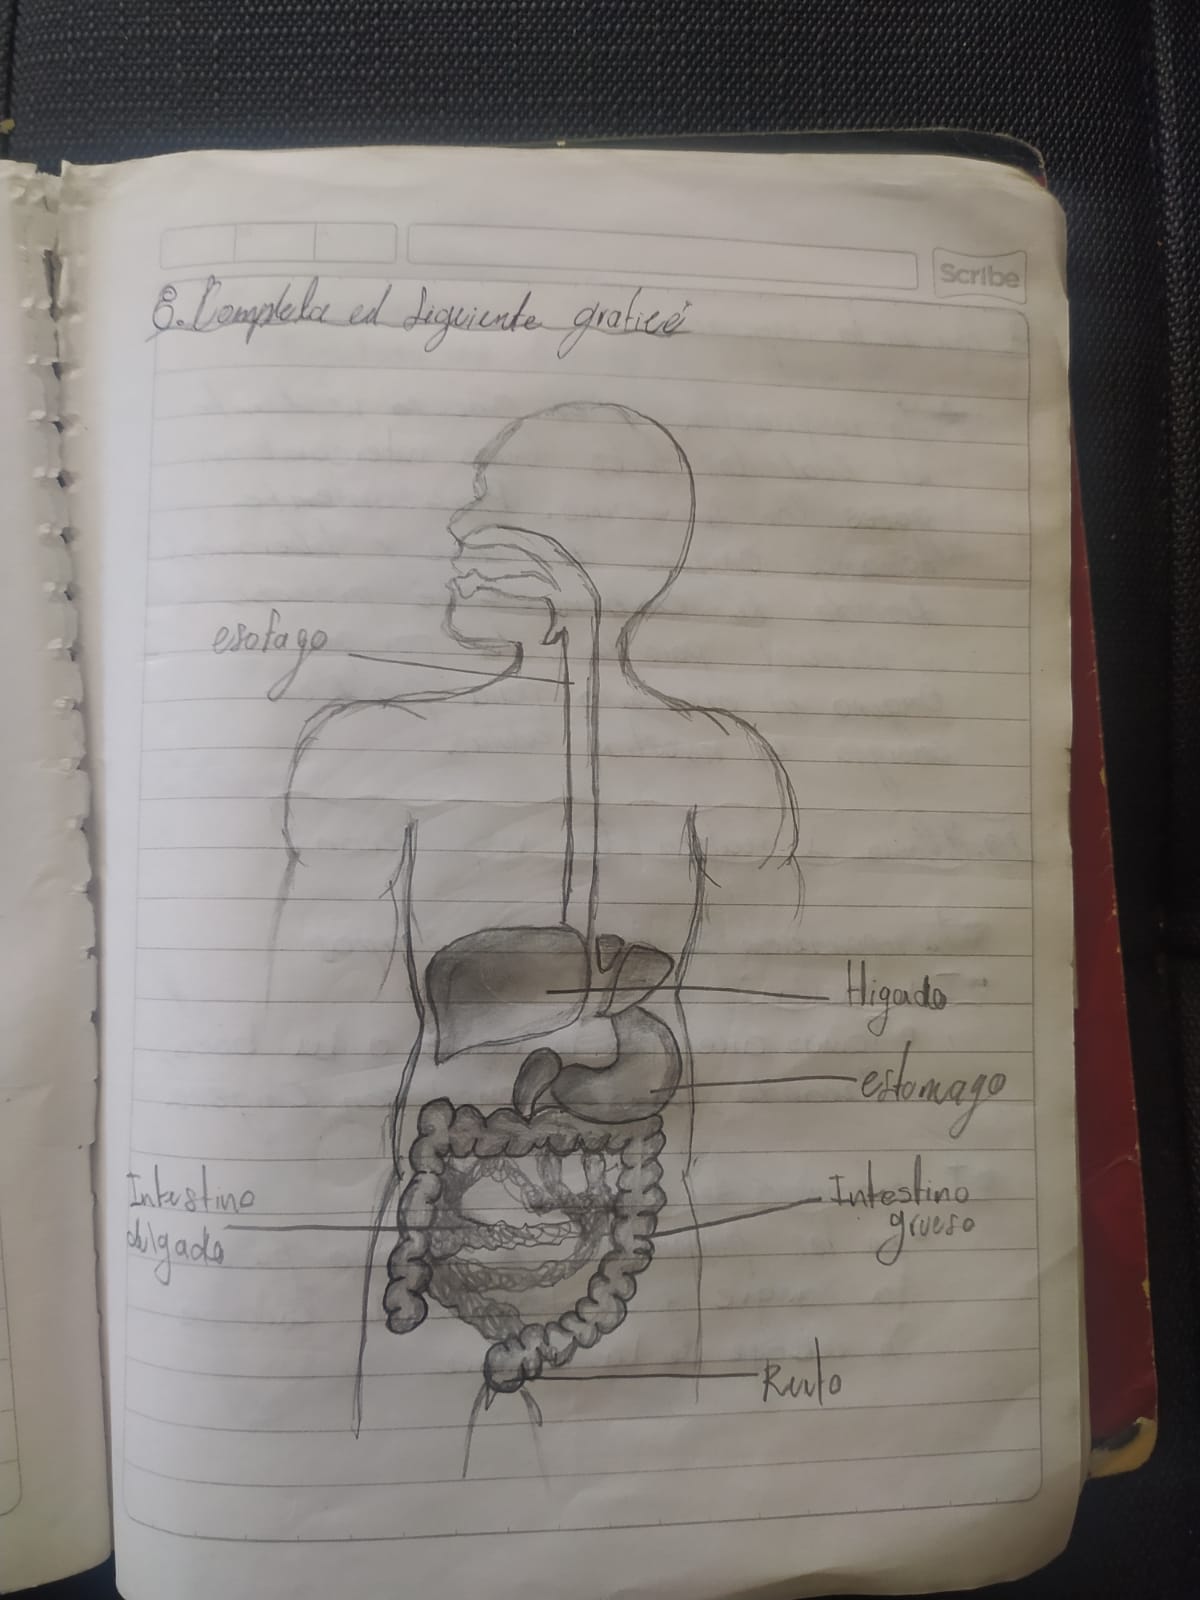 Scribe
8. Completa el siguiente grafico
esofago
Higado
estomago
Intestino
delgado
Intestino
grueso
Recto